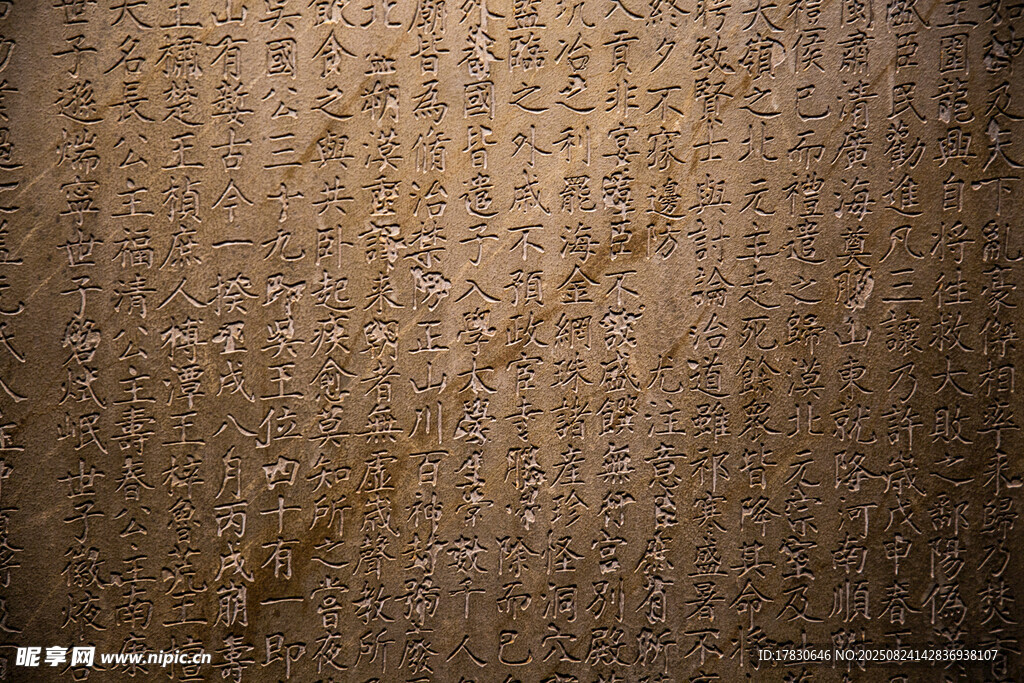 神及天下亂豪傑相率來歸乃焚香
王圍龍興自將往救大敗之鄱陽偽漢
臣民勸進凡三讓乃許歲戊申春正
閩肅清廣海奠服山東就降河南順附
禮侯已而禮遣之歸漠北元宗室及
大嶺之北元主走死餘眾皆降其命將
聘致賢士與討論治道雖祁寒盛暑不
終夕不寐邊防尤注意聖慮有所
入貢非宴蕃臣不設盛饌無行宮別殿
坑冶之利罷海金網珠諸產珍怪洞穴
監臨之外戚不預政宦寺服掃除而已
外番國皆遣子入學太學生常數千人
廟皆為脩治禁防正山川百神封號廢
北無朔漠未朝者無虛歲聲教所
飲食之與共臥起疾愈莫知所之嘗夜
吳國公三十九即吳王位四十有一即
山有數古今一揆壬戌八月丙戌崩壽
王橚楚王楨庶人榑潭王梓魯荒王檀
大名長公主福清公主壽春公主南康
世子遜煓寧世子磐烒岷世子徽焲
昵享网 www.nipic.cn
ID:17830646 NO:20250824142836938107